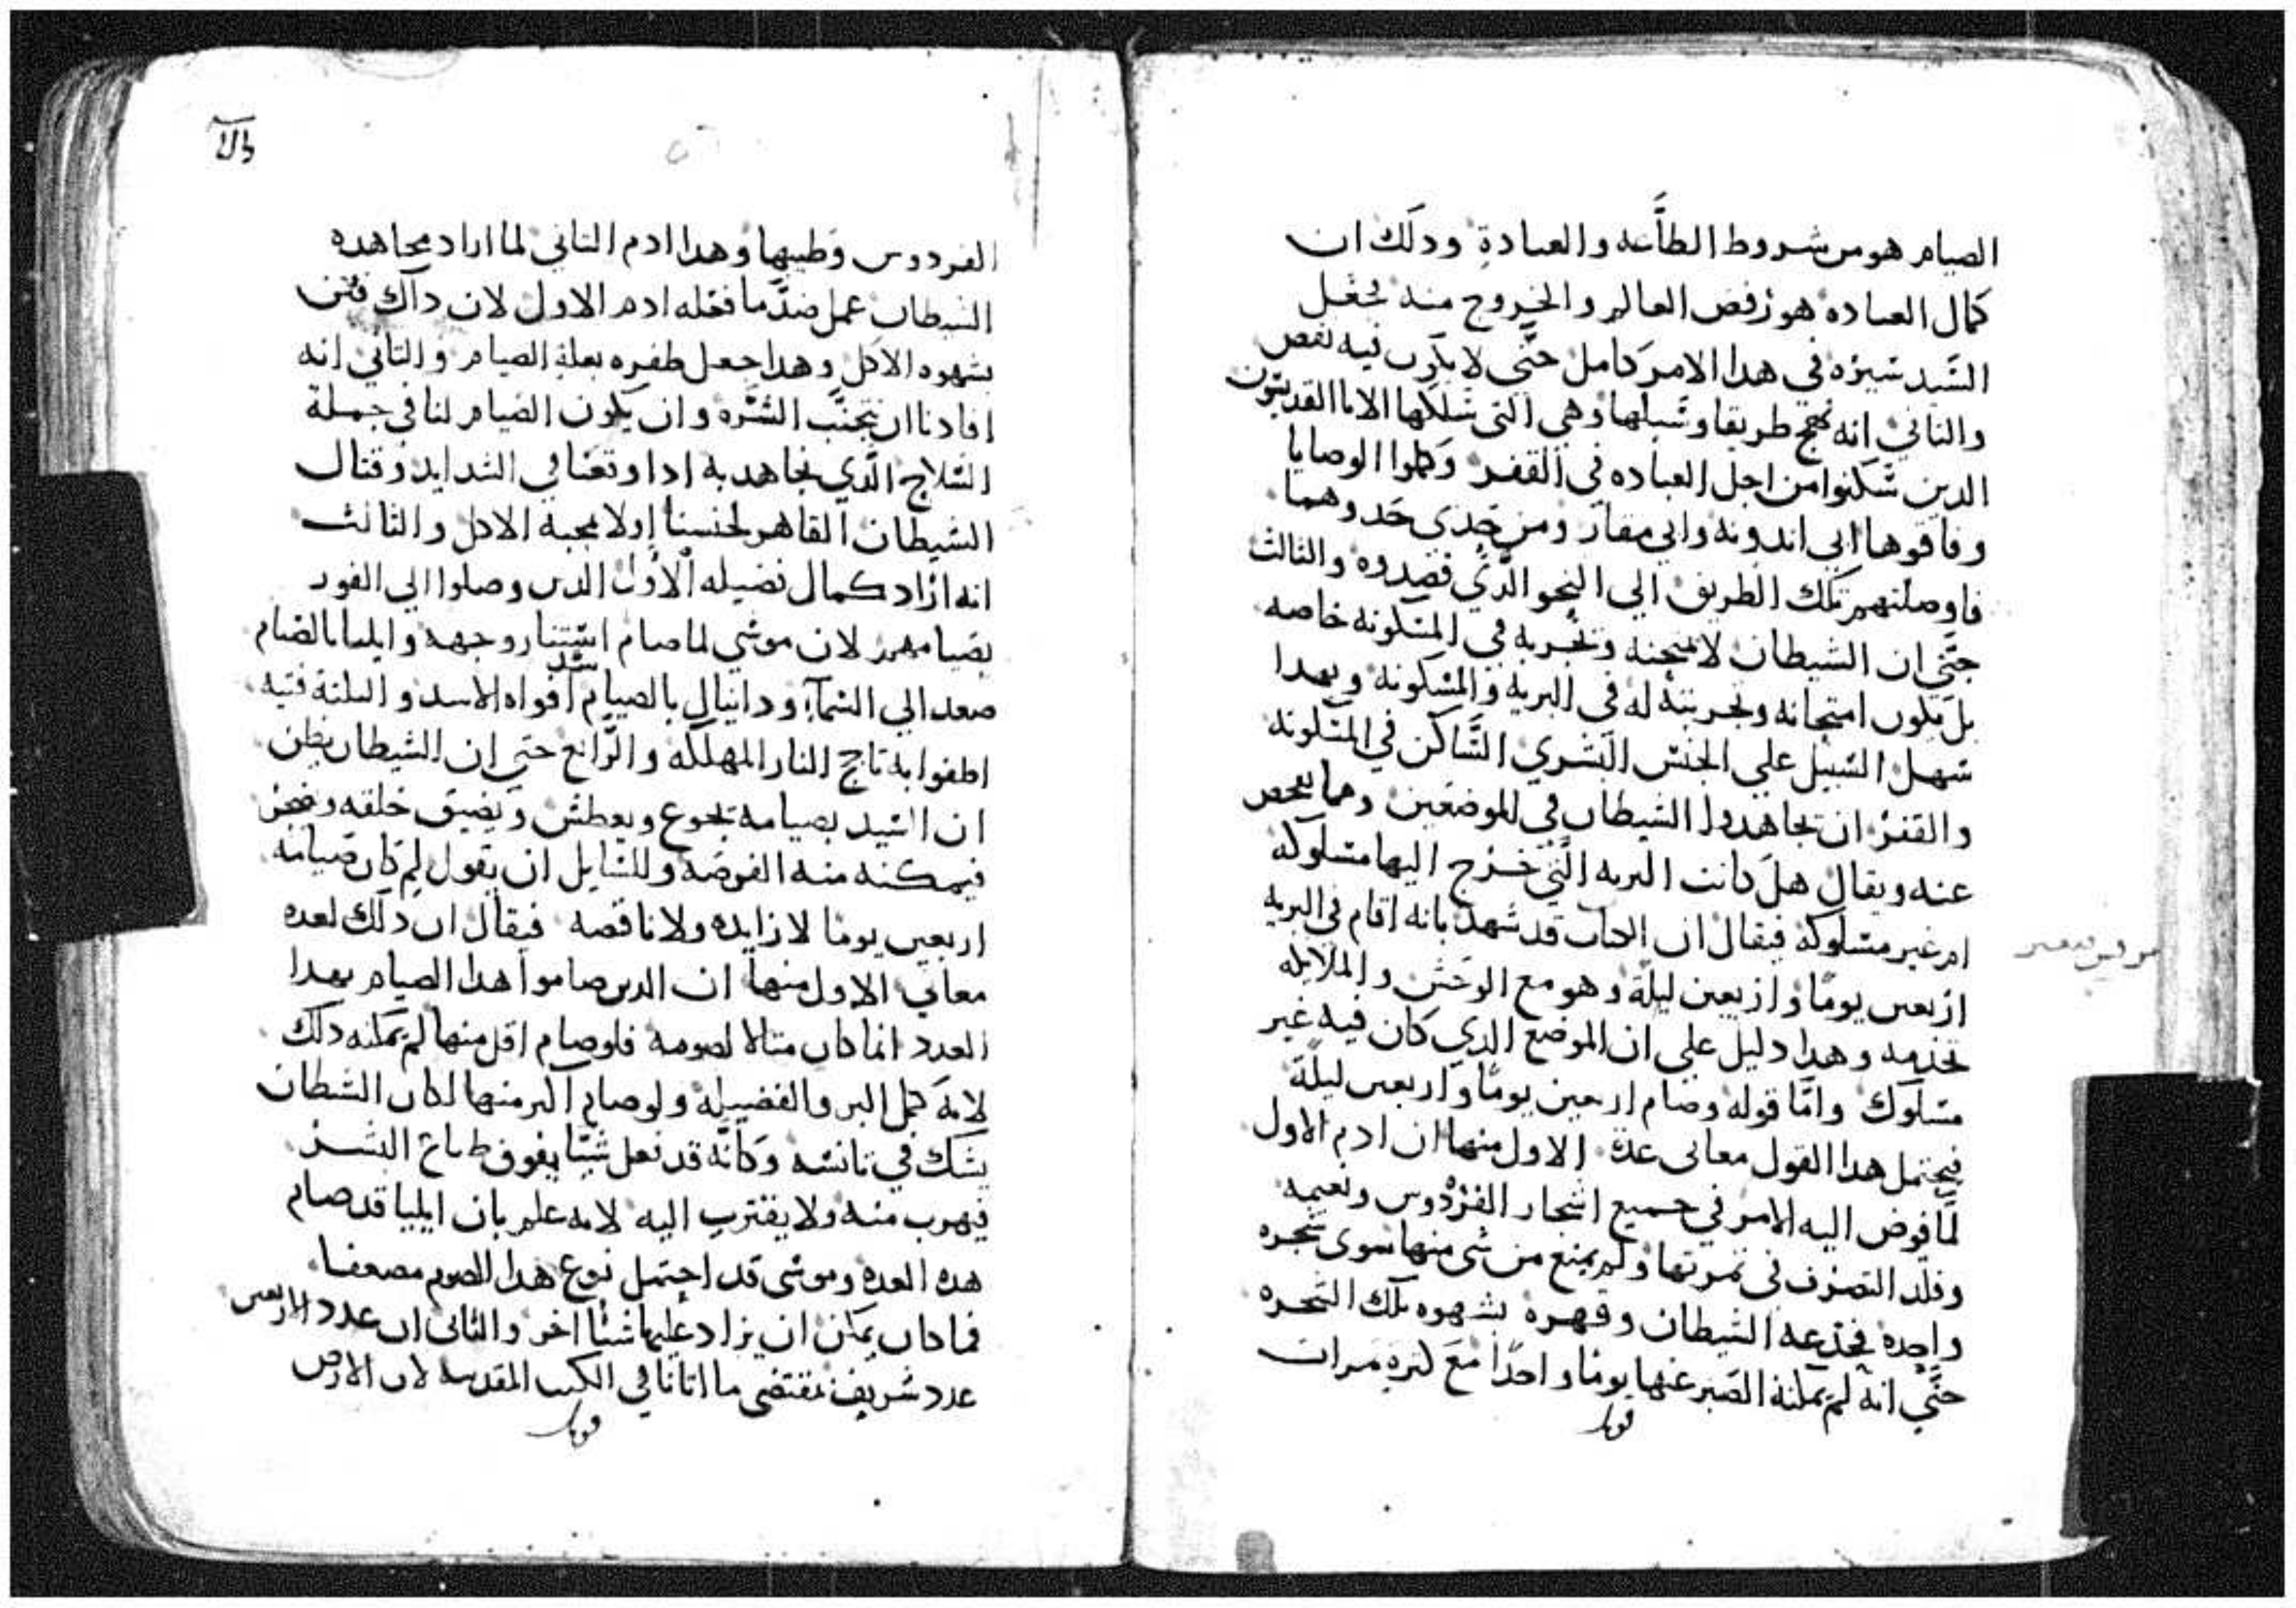 الصيام هو من شروط الطاَّعه والعبادةِ ودلَك ان
كمال العباده هو رفض العالم والخروج منه فجعل
السَّيد سيرَه في هدا الامر كامل حتَّي لا يكون فيه نقص
والتاني انه نهج طريقا وسَبلها وهي التى سَلكها الابا القديسَّون
الدين سَكنوا من اجل العباده في القفر وكملوا الوصايا
وفاقوها ابي اندونه وابي مقار ومن حدى حدوهما
فاوصلتهم تلك الطريق الي النحو الدَّي قصدوه والتالث
حتَّي ان الشيطان لا يمتحنه وتجربه في المسَكونه خاصه
بل يكون امتحانه وتجربته له في البريه والمسَكونه وبهدا
سَهل السَبيل علي الجنسَ البشري السَّاكن في المسَكونه
والقفر ان يجاهدوا الشيطان في الموضعين ومما يفحص
عنه ويقال هل كانت البريه التَّي خرج اليها مسَلوكه
ام غير مسَلوكة فيقال ان الكتاب قد شهد بانه اقام في البريه
اربعين يومًا واربعين ليلة وهو مع الوحش والملايكه
تخدمه وهدا دليل علي ان الموضع الدي كان فيه غير
مسَلوك وامَّا قوله وصام اربعين يومًا واربعين ليلة
فيحتمل هدا القول معاني عدة الاول منها ان ادم الاول
لمَّا فوض اليه الامر في جميع اشجار الفردوس ونعيمه
وقلد التصرف في ثمرتها ولم يمنع من شي منها سَوى شجره
واحده فخدعه الشيطان وقهره بشهوه تلك الشجره
حتَّي انه لم يمكنه الصبر عنها يومًا واحدًا معَ كتره مرات
قوبل
الفردوس وطيبها وهدا ادم التاني لما اراد مجاهده
الشيطان عمل ضدَّ ما فعله ادم الاول لان داك فتن
بشهوه الاكل وهدا جعل ظفره بعلة الصيام والتاني انه
افادنا ان نتجنَّب الشَّره وان يكون الصيام لنا في جملة
السَلاح الدَّي نجاهد به ادا وقعنا في الشدايد وقتال
الشيطان القاهر لجنسنا اولا بمحبة الاكل والتالت
انه اراد كمال فضيله الاول الدين وصلوا الي الفوز
بصيامهم لان موسَي لما صام اسَتنار وجهه وايليا بالصَيام
صعد الي السَمآء ودانيال بالصيام سَد افواه الاسد والتلتة فتيه
اطفوا به تاجج النار المهلكه والرَّابع حتي ان الشيطان يظن
ان السَيد بصيامه يجوع ويعطش ويضيق خلقه وضجر
فيمكنه منه الفرصَه وللسَايل ان يقول لِمَ كان صَيامه
اربعين يومًا لا زايده ولا ناقصه فيقال ان دلَك لعده
معاني الاول منها ان الدين صاموا هدا الصيام بهدا
العدد انما كان متالا لصومه فلو صام اقل منها لم يمكنه دلك
لانه كمل البر والفضيله ولو صام اكتر منها لكان الشيطان
يشك في تانسَه وكانَّه قد فعل شيًا يفوق طباع البشر
فيهرب منه ولا يقترب اليه لانه علم بان ايليا قد صام
هده العده وموسَى قد احتمل نوع هدا الصوم مضعفا
فما كان يمكن ان يزاد عليها شيًا اخر والتانى ان عدد الاربعين
عدد شريف بمقتضى ما اتانا في الكتب المقدسه لان الارض
قوبل